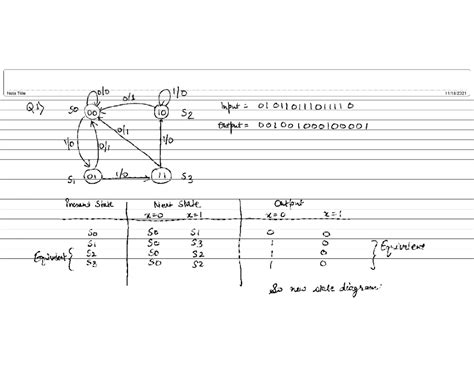 Note Title
11/18/2021
Q1>
0/0
1/0
0/1
S0 00
10 S2
Input = 010110111011110
Output = 001001000100001
0/1
1/0
0/1
S1 01
1/0
11 S3
Present State Next State Output
x=0 x=1 x=0 x=1
S0 S0 S1 0 0
S1 S0 S3 1 0
S2 S0 S2 1 0
S3 S0 S2 1 0
Equivalent
Equivalent
So new state diagram: